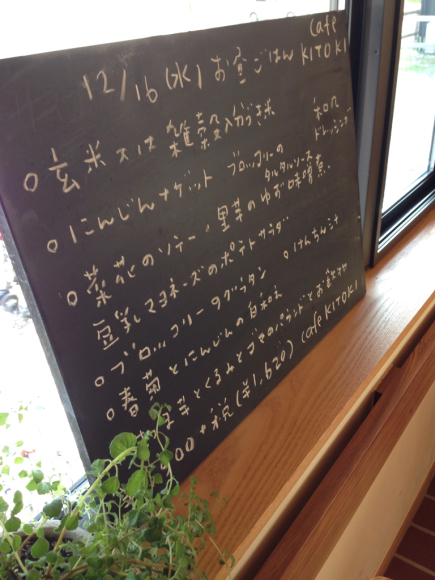 cafe KITOKI
12/16 (水) お昼ごはん
○玄米又は雑穀入分づき米
○にんじんナゲット ブロッコリーのタルタルソース
和風ドレッシング
○菜花のソテー・里芋のゆず味噌煮
豆乳マヨネーズのポテトサラダ
○ブロッコリーのグラタン ○けんちん汁
○春菊とにんじんの白和え
くるみとゴマのパウンドとお茶
00+税(¥1,620) cafe KITOKI